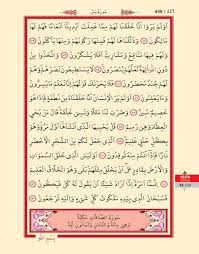 سُورَةُ يٰسٓ
اَوَلَمْ يَرَوْا اَنَّا خَلَقْنَا لَهُمْ مِمَّا عَمِلَتْ اَيْدِينَا اَنْعَامًا فَهُمْ لَهَا
مَالِكُونَ وَذَلَّلْنَاهَا لَهُمْ فَمِنْهَا رَكُوبُهُمْ وَمِنْهَا يَأْكُلُونَ
وَلَهُمْ فِيهَا مَنَافِعُ وَمَشَارِبُ اَفَلَا يَشْكُرُونَ وَاتَّخَذُوا مِنْ
دُونِ اللّٰهِ اٰلِهَةً لَعَلَّهُمْ يُنْصَرُونَ لَا يَسْتَطِيعُونَ نَصْرَهُمْ وَهُمْ
لَهُمْ جُنْدٌ مُحْضَرُونَ فَلَا يَحْزُنْكَ قَوْلُهُمْ اِنَّا نَعْلَمُ مَا يُسِرُّونَ
وَمَا يُعْلِنُونَ اَوَلَمْ يَرَ الْاِنْسَانُ اَنَّا خَلَقْنَاهُ مِنْ نُطْفَةٍ فَاِذَا هُوَ
خَصِيمٌ مُبِينٌ وَضَرَبَ لَنَا مَثَلًا وَنَسِيَ خَلْقَهُ قَالَ مَنْ يُحْيِ الْعِظَامَ
وَهِيَ رَمِيمٌ قُلْ يُحْيِيهَا الَّذِي اَنْشَاَهَا اَوَّلَ مَرَّةٍ وَهُوَ بِكُلِّ
خَلْقٍ عَلِيمٌ الَّذِي جَعَلَ لَكُمْ مِنَ الشَّجَرِ الْاَخْضَرِ
نَارًا فَاِذَا اَنْتُمْ مِنْهُ تُوقِدُونَ اَوَلَيْسَ الَّذِي خَلَقَ السَّمٰوَاتِ
وَالْاَرْضَ بِقَادِرٍ عَلٰى اَنْ يَخْلُقَ مِثْلَهُمْ بَلٰى وَهُوَ الْخَلَّاقُ الْعَلِيمُ
اِنَّمَا اَمْرُهُ اِذَا اَرَادَ شَيْئًا اَنْ يَقُولَ لَهُ كُنْ فَيَكُونُ
فَسُبْحَانَ الَّذِي بِيَدِهِ مَلَكُوتُ كُلِّ شَيْءٍ وَاِلَيْهِ تُرْجَعُونَ
سُورَةُ الصَّافَّاتِ مَكِّيَّةٌ
وَهِيَ مِائَةٌ وَاثْنَتَانِ وَثَمَانُونَ اٰيَةً